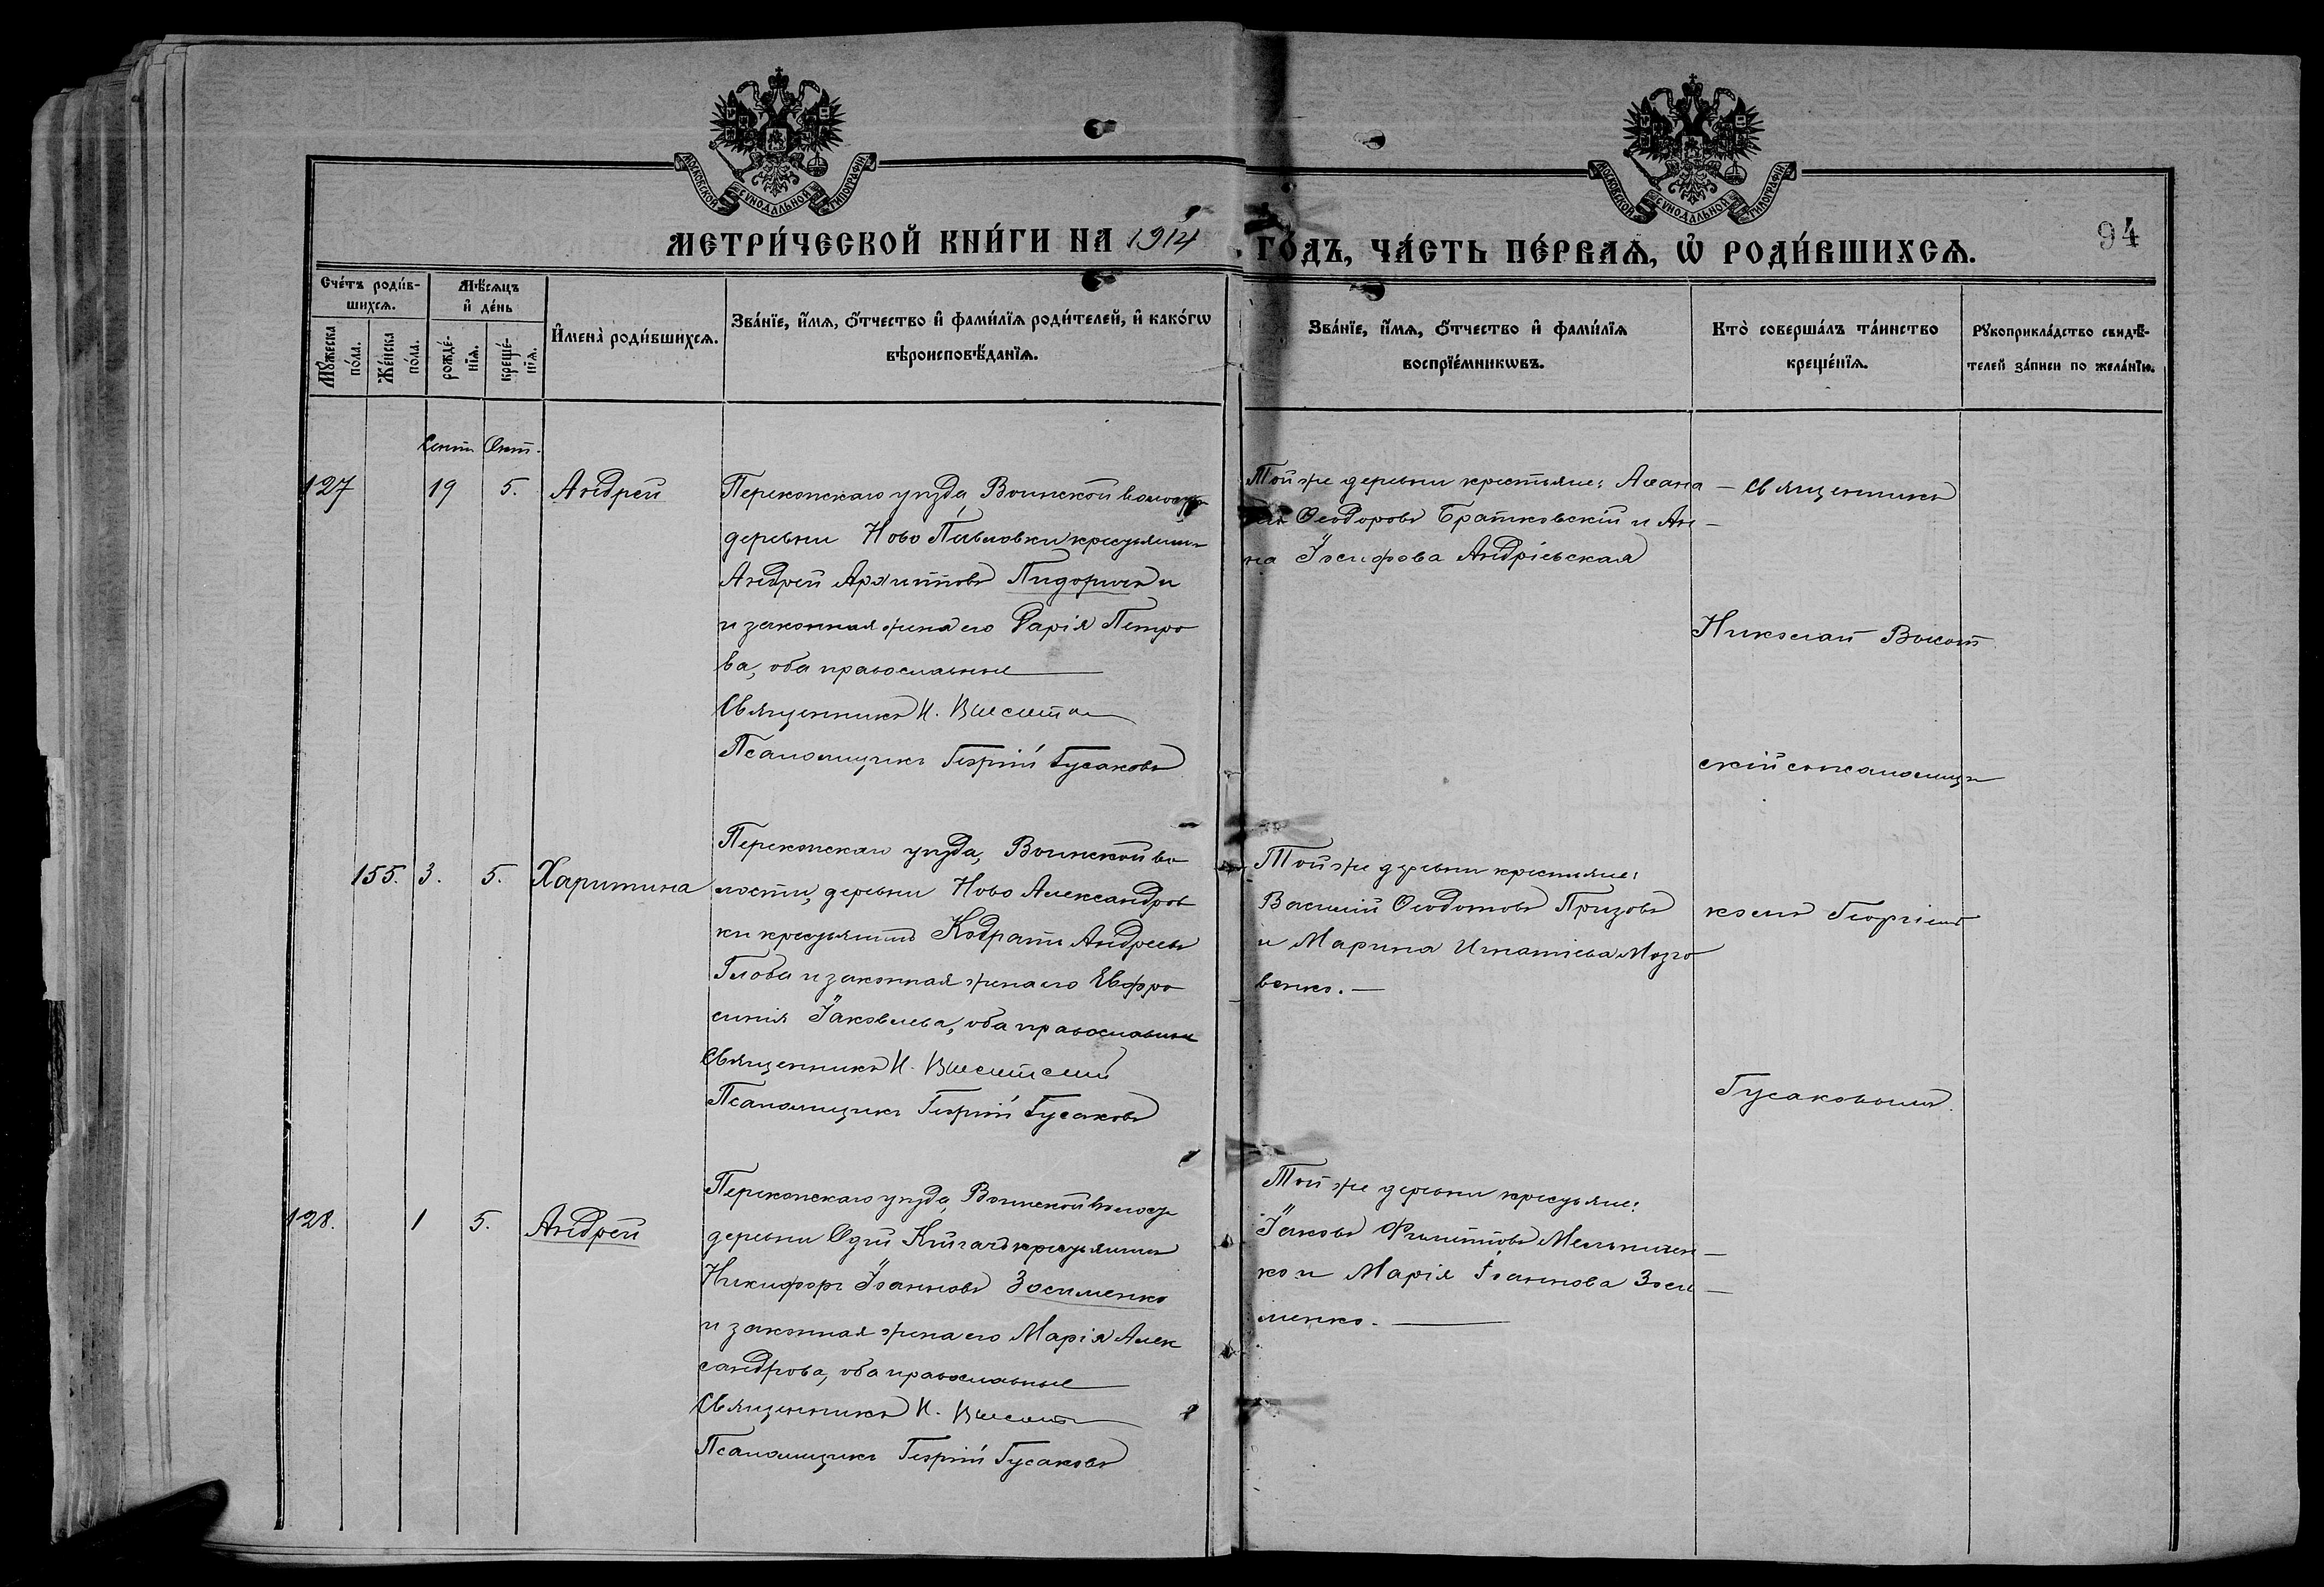 МОСКОВСКОЙ СѴНОДАЛЬНОЙ ТИПОГРАФІИ
МОСКОВСКОЙ СѴНОДАЛЬНОЙ ТИПОГРАФІИ
МЕТРИ́ЧЕСКОЙ КНИ́ГИ НА 1914 ГО́ДЪ, ЧА́СТЬ ПЕ́РВАѦ, Ѡ҆ РОДИ́ВШИХСѦ.
94
Сче́тъ роди́в-
шихсѧ.
Мꙋжеска по́ла.
Же́нска по́ла.
Мѣ́сѧцъ
и҆ де́нь
рожде́-
нїѧ.
креще́-
нїѧ.
И҆мена̀ роди́вшихсѧ.
Зва́нїе, и҆́мѧ, ѻ҆́тчество и҆ фами́лїѧ роди́телей, и҆ како́гѡ
вѣроисповѣ́данїѧ.
Зва́нїе, и҆́мѧ, ѻ҆́тчество и҆ фами́лїѧ
воспрїе́мникѡвъ.
Кто̀ соверша́лъ та́инство
креще́нїѧ.
Рꙋкоприкла́дство свидѣ́-
телей за́писи по жела́нїю.
Сент. Окт.
127 19 5. Андрей
Перекопскаго уѣзда, Воинской волости
деревни Ново Павловки крестьянинъ
Андрей Архиповъ
и законная жена его Дарія Петро
ва, оба православные
Священникъ Н.
Псаломщикъ Георгій Гусаковъ
Той же деревни крестьяне: Афана-
Ѳеодоровъ Братковскій и Ан-
на Іосифова Андріевская
Священникъ
Николай
скій съ псаломщи
комъ Георгіемъ
Гусаковымъ.
155. 3. 5. Харитина
Перекопскаго уѣзда, Воинской во
лости, деревни Ново Александров
ки крестьянинъ Кодратъ Андреевъ
Глоба и законная жена его Евфро
синія Іаковлева, оба православные
Священникъ Н.
Псаломщикъ Георгій Гусаковъ
Той же деревни крестьяне:
Василій Ѳеодотовъ Призовъ
и Марина Игнатіева Мозго
венко.
128. 1 5. Андрей
Перекопскаго уѣзда, Воинской волости
деревни крестьянинъ
Никифоръ Іоанновъ Зосименко
и законная жена его Марія Алек
сандрова, оба православные
Священникъ Н.
Псаломщикъ Георгій Гусаковъ
Той же деревни крестьяне:
Іаковъ Филипповъ Мельничен-
ко и Марія Іоаннова Зоси-
менко.